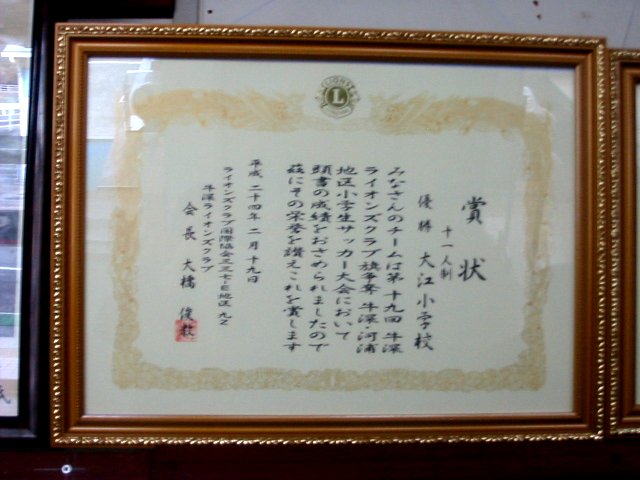 賞状
十一人制
優勝 大江小学校
みなさんのチームは第十九回 牛深
ライオンズクラブ旗争奪 牛深・河浦
地区小学生サッカー大会において
頭書の成績をおさめられましたので
茲にその栄誉を讃えこれを賞します
平成 二十四年 二月 十九日
ライオンズクラブ国際協会三三七-E地区 九Z
牛深ライオンズクラブ
会長 大橋 俊
LIONS
L